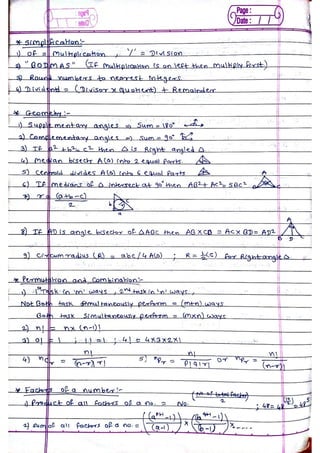 Page:
Date:
* Simplification:-
1) OF = Multiplication , '/' = Division
2) "BODMAS" (If Multiplication is on left then multiply first)
3) Round numbers to nearest Integers.
4) Dividend = (Divisor x Quotient) + Remainder
* Geometry:-
1) Supplementary angles => Sum = 180°
2) Complementary angles => Sum = 90°
3) If a² + b² = c² then △ is Right angled △
4) Median bisects A(△) into 2 equal parts
5) Centroid divides A(△) into 6 equal parts
6) If medians of △ intersect at 90° then AB² + AC² = 5BC²
7) r = (a+b-c)
2
8) If AD is angle bisector of △ABC then AB x CD = AC x BD = AD²
9) Circumradius (R) = abc / 4 A(△) ; R = ½(c) for Right angle △
* Permutation and Combination:-
1) 1st Task in 'm' ways , 2nd task in 'n' ways ,
Not Both task simultaneously perform = (m+n) ways
Both task Simultaneously perform = (mxn) ways
2) n! = nx (n-1)!
3) 0! = 1 ; 1! = 1 ; 4! = 4x3x2x1
4) nCr = n! / (n-r)! r! 5) nPr = n! / p! q! r! or nPr = n! / (n-r)!
* Factors of a number:-
1) Product of all factors of a no. = No. (no. of total factor) / 2 ; 48 = 48
2) Sum of all factors of a no. = ((a^(p+1) - 1) / (a-1)) x ((b^(q+1) - 1) / (b-1)) x .....